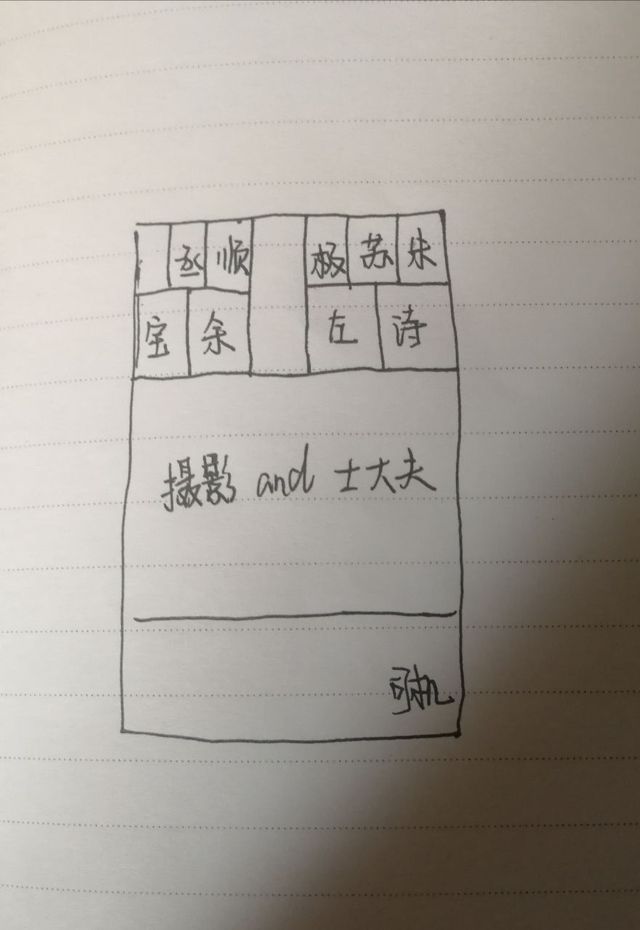 丞 顺 极 苏 朱
宝 余 左 诗
摄影 and 士大夫
司机